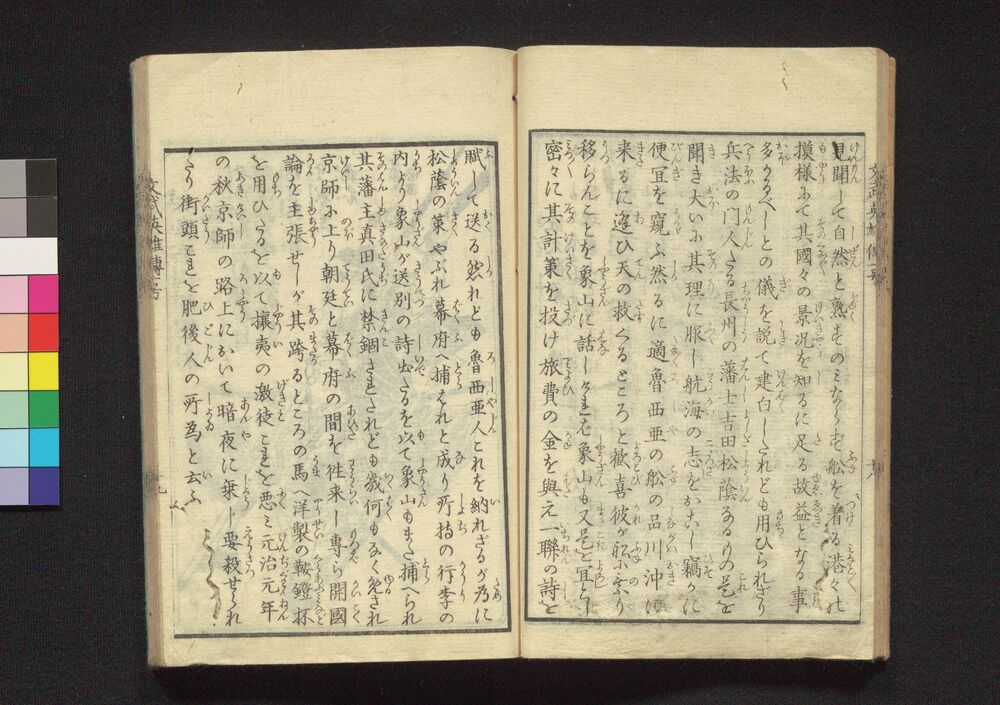 見聞して自然と熟すのみならず舩を着る港々の
摸様にて其國々の景况を知るに足る故益となる事
多かるべしとの儀を説て建白したれども用ひられざり
兵法の門人たる長州の藩士吉田松蔭なるもの是を
聞き大いに其理に服し航海の志をおこし竊かに
便宜を窺ふ然るに適魯西亜の船の品川沖に
来るに逢ひ天の救くるところと歓喜彼が舩に乗り
移らんことを象山に話しければ象山も又是を冝とし
密々に其計策を投け旅費の金を與え一聯の詩を
賦して送る然れども魯西亜人これを納れざるが為に
松蔭の策やぶれ幕府へ捕はれと成り所持の行李の
内より象山が送別の詩出たるを以て象山もまた捕へられ
其藩主真田氏に禁錮されたれども幾何もなく免され
京師に上り朝廷と幕府の間を徃来し専ら開國
論を主張せしが其跨るところの馬へ洋製の鞍鐙抔
を用ひたるを以て攘夷の激徒これを悪ミ元治元年
の秋京師の路上において暗夜に乗じ要殺せられ
たり街頭これを肥後人の所為と云ふ